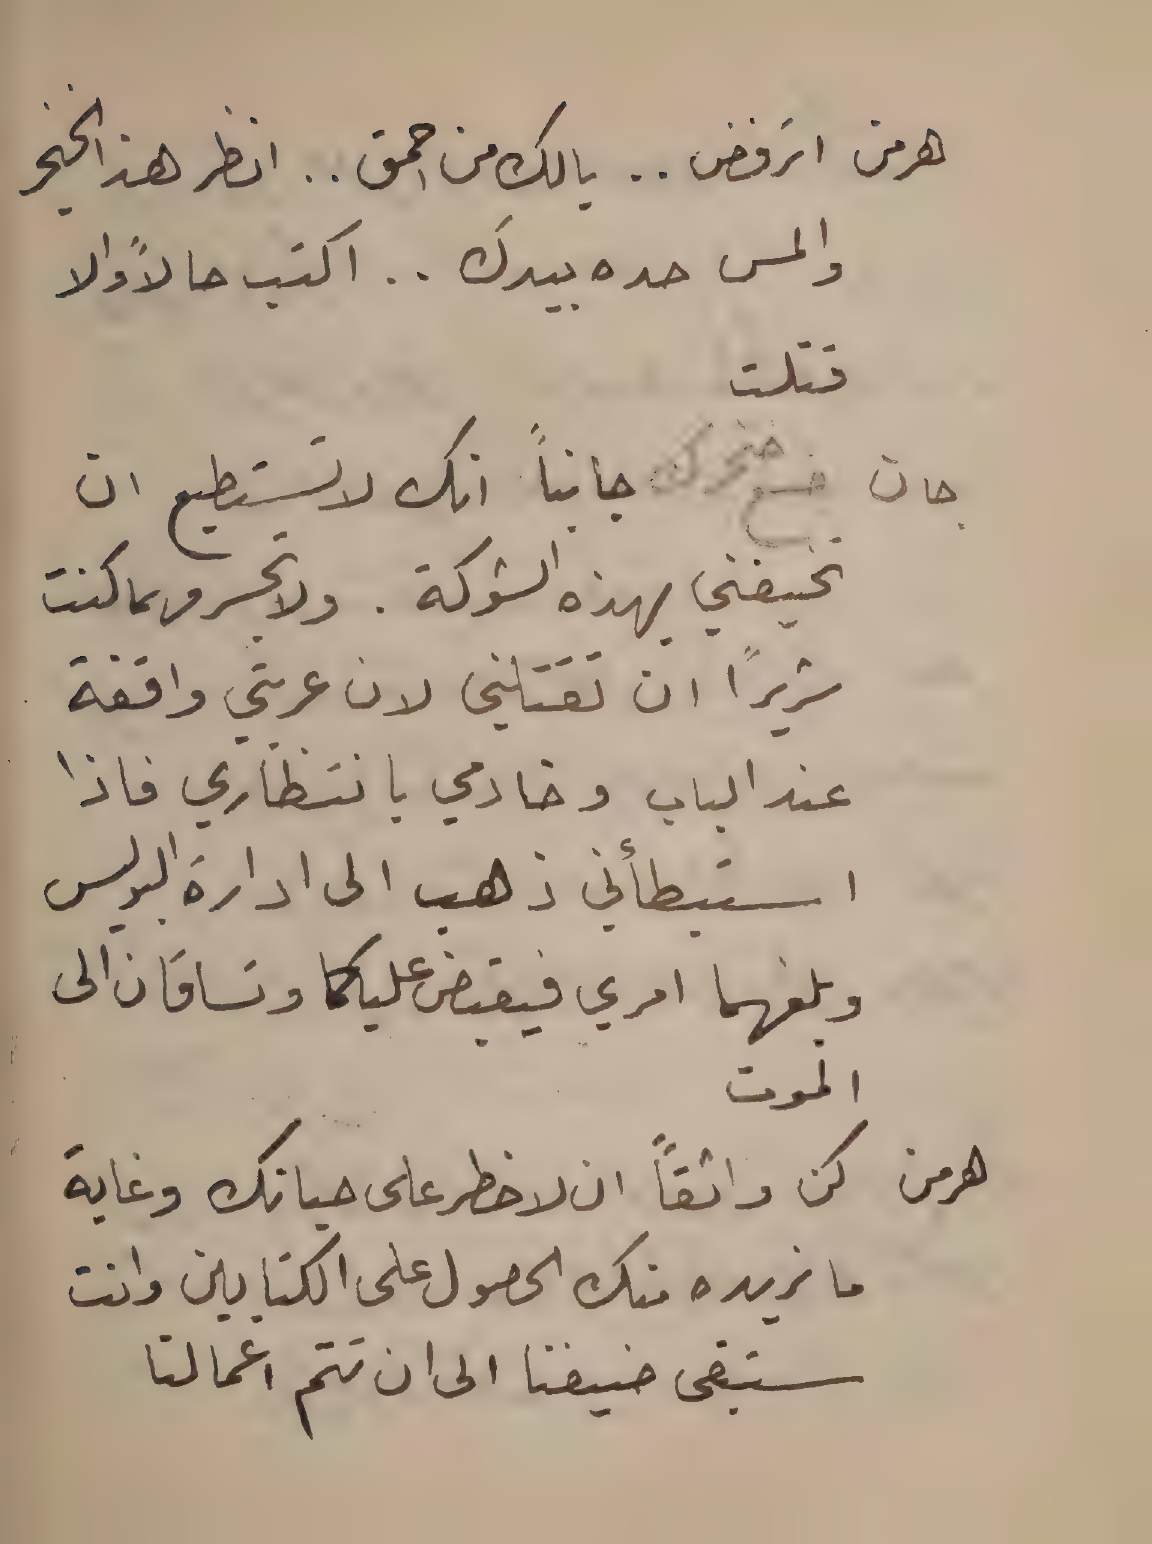 هرمن اترفض .. يالك من احمق .. انظر هذا الخنجر
والمس حده بيدك .. اكتب حالاً والا
قتلت
جان ضع خنجرك جانباً انك لا تستطيع ان
تخيفني بهذه الشوكة . ولا تجسر مهما كنت
شريراً ان تقتلني لان عربتي واقفة
عند الباب وخادمي بانتظاري فاذا
استبطأني ذهب الى ادارة البوليس
وبلغهما امري فيقبض عليكما وتساقان الى
الموت
هرمن كن واثقاً ان لا خطر على حياتك وغاية
ما نريده منك الحصول على الكتابين وانت
ستبقى ضيفنا الى ان تتم اعمالنا